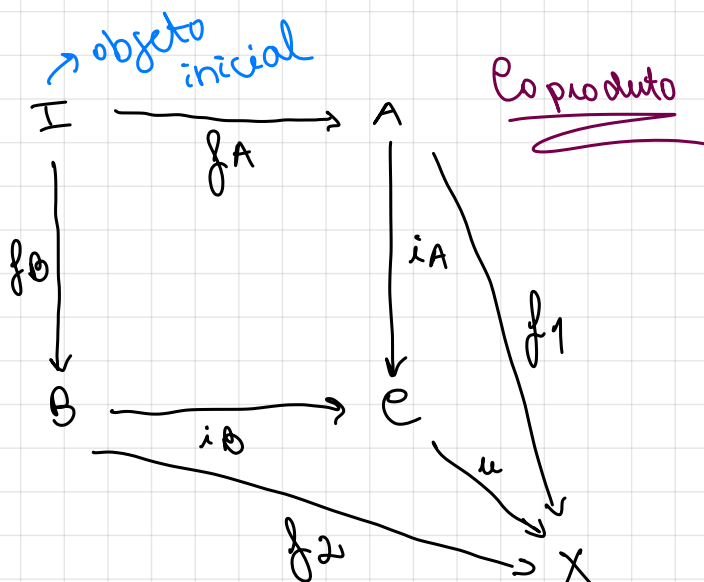 objeto
inicial
Coproduto
I
A
fA
fB
iA
f1
B
C
iB
u
f2
X